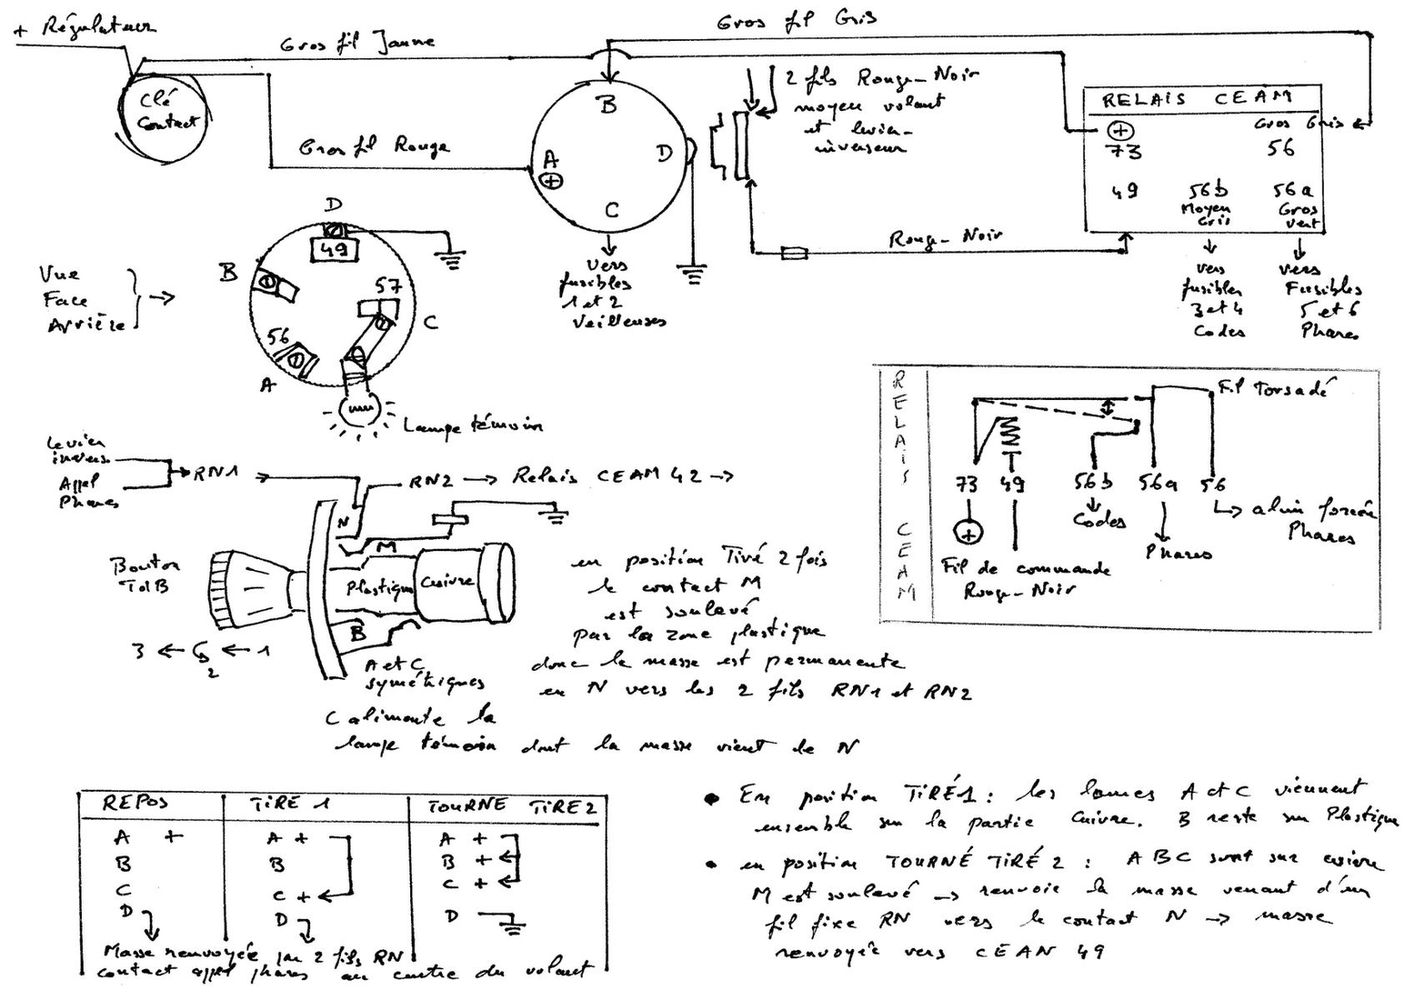 + Régulateur
Gros fil Jaune
Gros fil Gris
Clé
Contact
Gros fil Rouge
B
A
+
D
C
2 fils Rouge-Noir
moyen volant
et levier-
inverseur
RELAIS CEAM
+
Gros Gris
73
56
49
56b
56a
Moyen
Gris
Gros
Vert
Rouge-Noir
vers
fusibles
1 et 2
Veilleuses
vers
fusibles
3 et 4
Codes
vers
Fusibles
5 et 6
Phares
Vue
Face
Arrière
D
49
B
57
C
56
A
Lampe témoin
RELAIS CEAM
Fil Torsadé
73
49
56b
56a
56
Codes
Phares
alim forcée
Phares
+
Fil de commande
Rouge-Noir
Levier
invers.
Appel
Phares
RN1
RN2 → Relais CEAM 42 →
N
M
Bouton
Plastique
Cuivre
B
3 ← 2 ← 1
A et C
symétriques
en position Tiré 2 fois
le contact M
est soulevé
par la zone plastique
donc la masse est permanente
en N vers les 2 fils RN1 et RN2
C alimente la
lampe témoin dont la masse vient de N
REPOS
A +
B
C
D
TIRÉ 1
A +
B
C +
D
TOURNE TIRE 2
A +
B +
C +
D
Masse renvoyée par 2 fils RN
contact appel phares au centre du volant
• En position TIRÉ1 : les lames A et C viennent
ensemble sur la partie Cuivre. B reste sur Plastique
• en position TOURNÉ TIRÉ 2 : ABC sont sur cuivre
M est soulevé → renvoie la masse venant d'un
fil fixe RN vers le contact N → masse
renvoyée vers CEAN 49